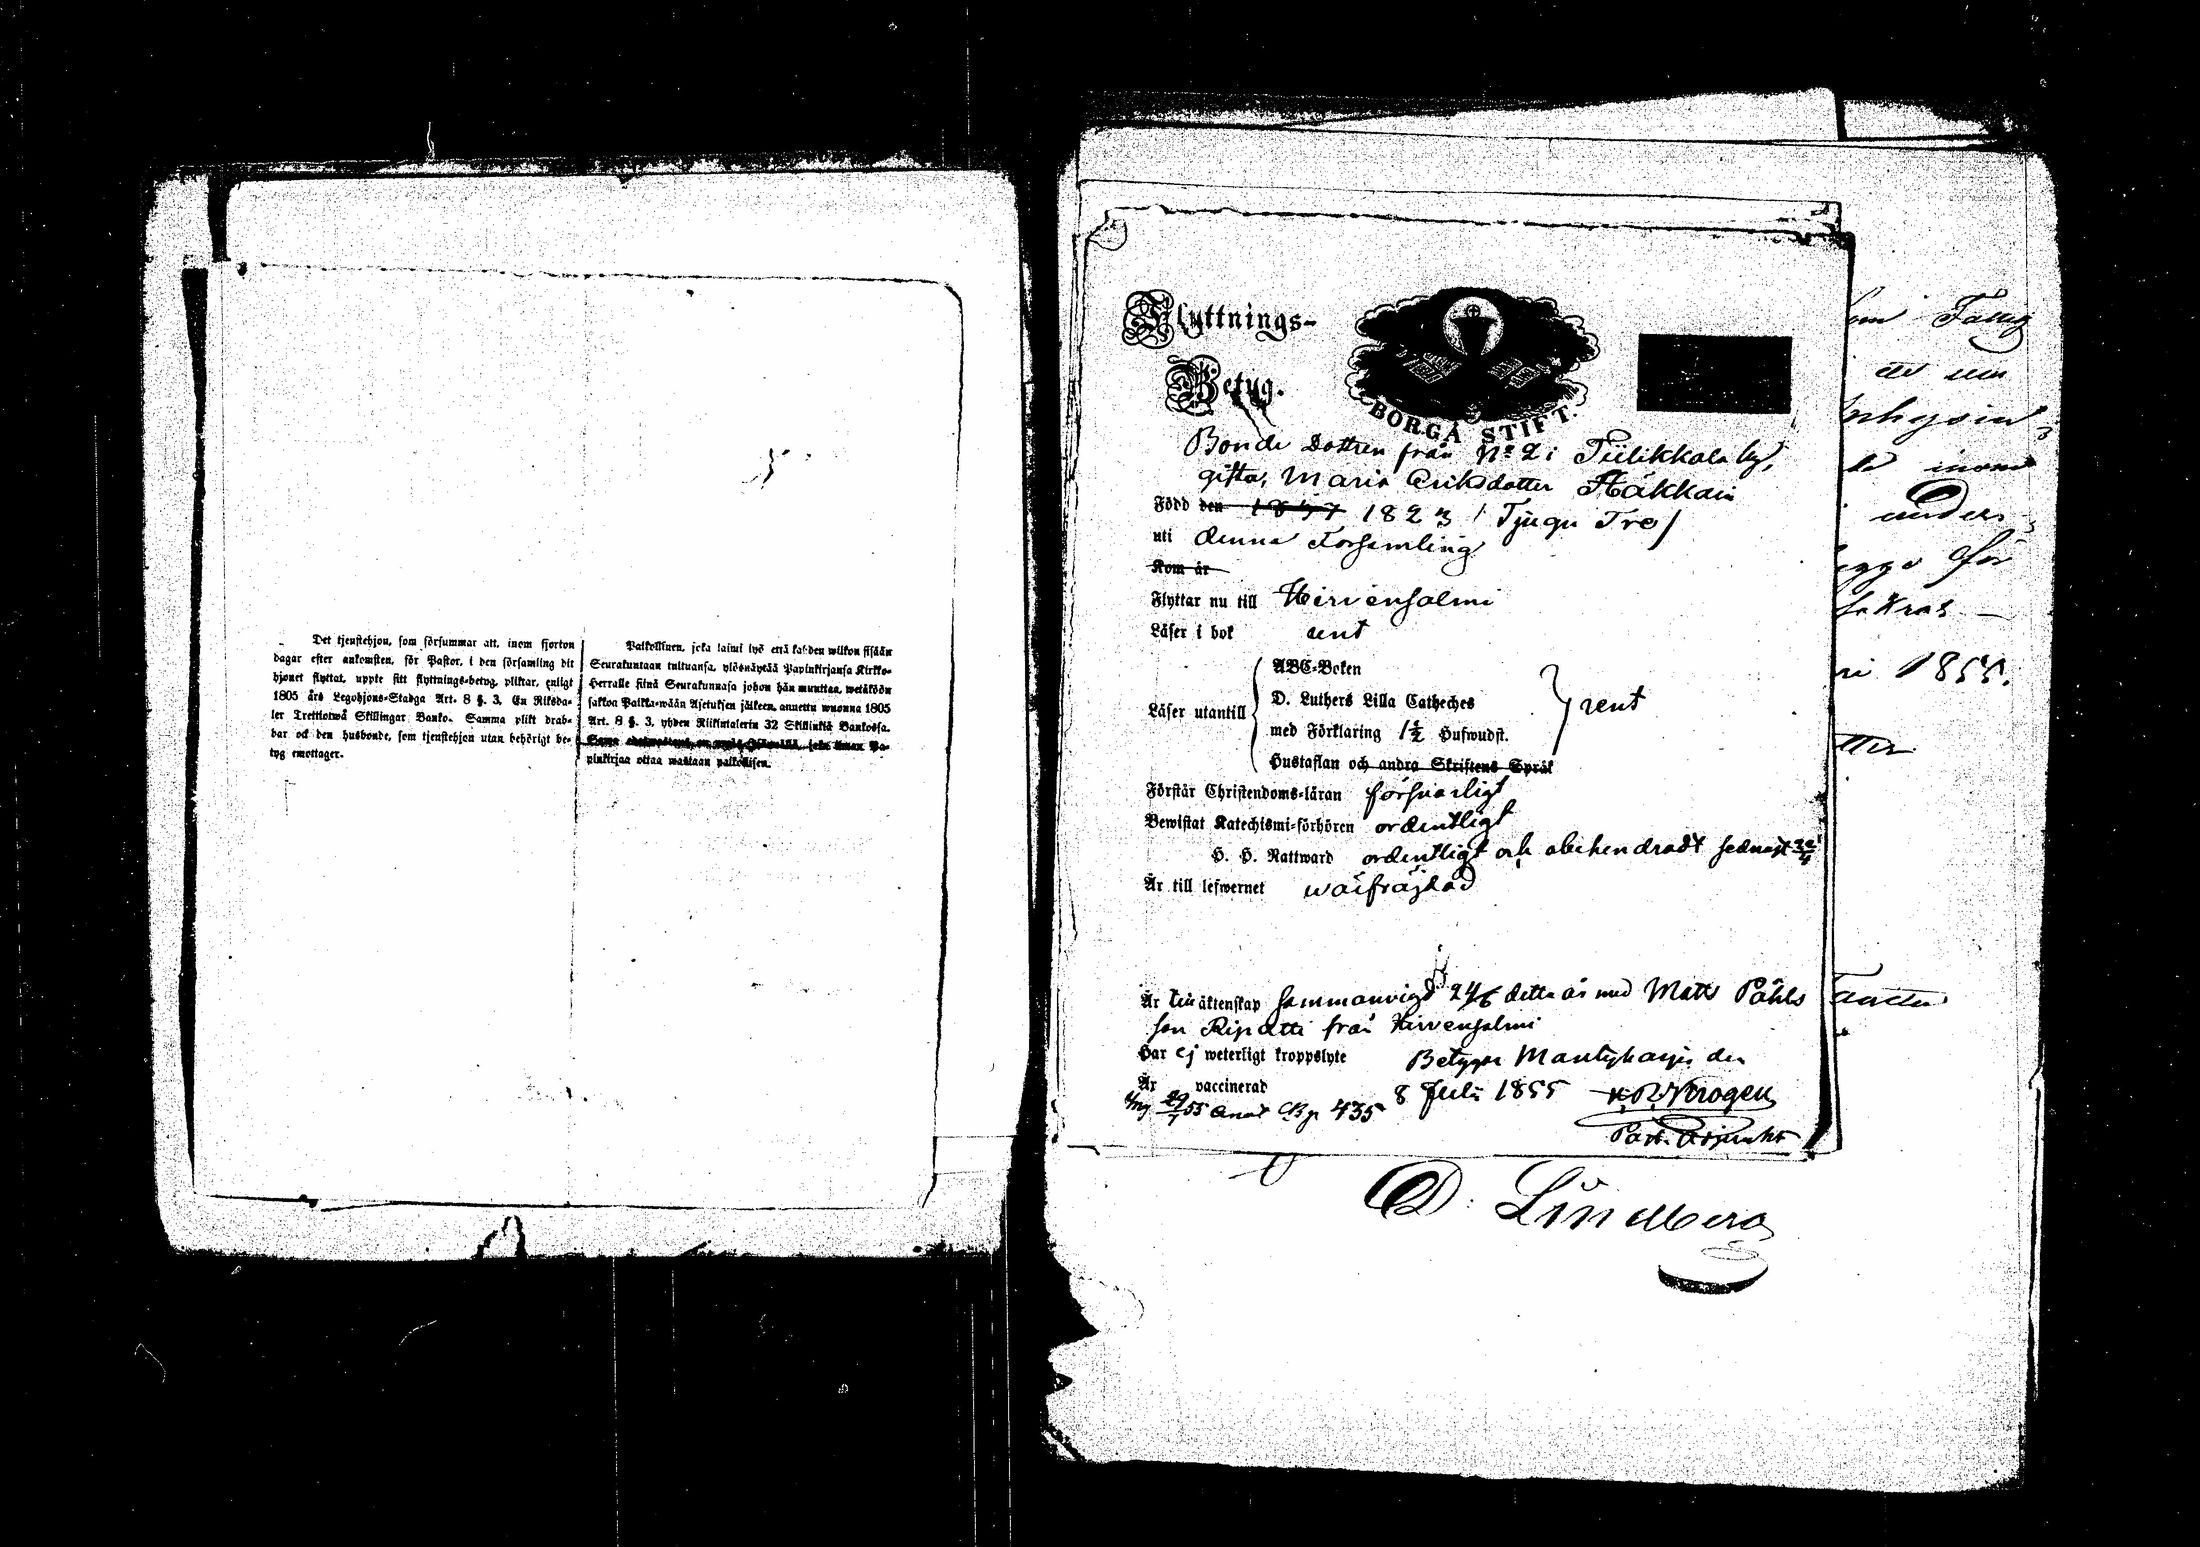 Det tjenstehjon, som försummar att, inom fjorton
dagar efter ankomsten, för Pastor, i den församling dit
hjonet flyttat, uppte sitt flyttnings-betyg, pliktar, enligt
1805 års Legohjons-Stadga Art. 8 §. 3. En Riksda-
ler Trettiotwå Skillingar Banko. Samma plikt drab-
bar ock den husbonde, som tjenstehjon utan behörigt be-
tyg emottager.
Palkollinen, joka laimi lyö että kahden wiikon sisään
Seurakuntaan tultuansa, ylösnäyttää Papinkirjansa Kirkko-
Herralle siinä Seurakunnasa johon hän muuttaa, wetäköön
sakkoa Palkka-wään Asetuksen jälkeen, annettu wuonna 1805
Art. 8 §. 3, yhden Riikintalerin 32 Skillinkiä Bankossa.
Sama
pinkirjaa ottaa wastaan palkollisen.
Flyttnings-
Betyg.
BORGÅ STIFT.
Bonde Dottren från No 2 i Tiilikkala by,
gifta, Maria Eriksdotter Häkkäin
Född den 1823 / Tjugu Tre /
uti denna Församling
Kom år
Flyttar nu till Hirvensalmi
Läser i bok rent
Läser utantill
ABC-Boken
D. Luthers Lilla Catheches
med Förklaring 1½ Hufwudst.
Hustaflan och andra Skriftens Språk
rent
Förstår Christendoms-läran försvarligt
Bewistat Katechismi-förhören ordentligt
H. H. Nattward ordentligt och obehindradt sednast
Är till lefwernet wälfräjdad
Är äktenskap sammanvigd 24/6 detta år med Matts Påhls
son Ripatti från Hirvensalmi
Har ej weterligt kroppslyte
Betygar Mäntyharju den
Är vaccinerad
8 Juli 1855
Krogen
Past. Adjunkt
29/7 55 435
1855.
D. Lindberg